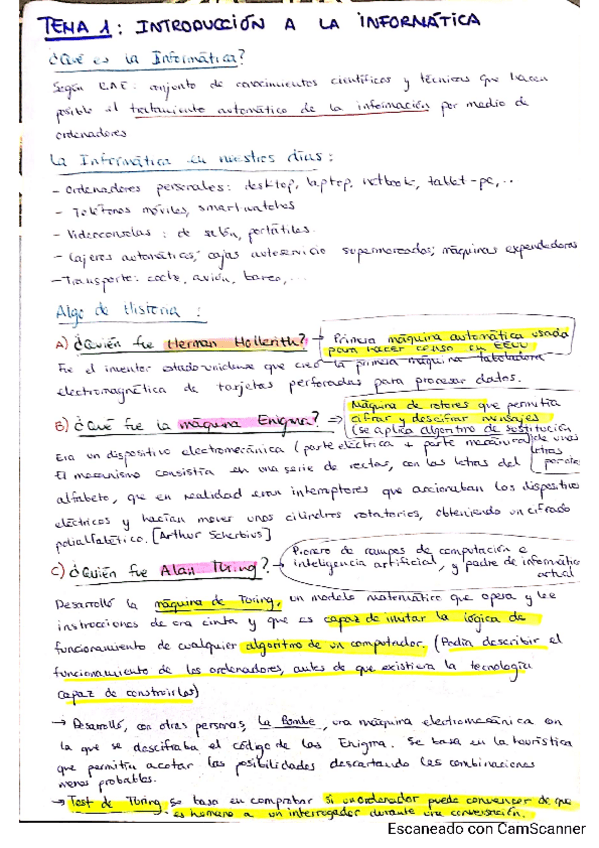 TEMA 1: INTRODUCCIÓN A LA INFORMÁTICA
¿Qué es la Informática?
Según RAE: conjunto de conocimientos científicos y técnicas que hacen
posible el tratamiento automático de la información por medio de
ordenadores
La Informática en nuestros días:
- Ordenadores personales: desktop, laptop, netbook, tablet-pc,..
- Teléfonos móviles, smartwatches
- Videoconsolas: de salón, portátiles.
- Cajeros automáticos; cajas autoservicio supermercados; máquinas expendedoras
- Transporte: coche, avión, barco,...
Algo de Historia:
A) ¿Quién fue Herman Hollerith? → Primera máquina automática usada
para hacer censo en EEUU
Fue el inventor estadounidense que creó la primera máquina tabuladora
electromagnética de tarjetas perforadas para procesar datos.
B) ¿Qué fue la máquina Enigma? ⇒ Máquina de rotores que permitía
cifrar y descifrar mensajes
(se aplica algoritmo de sustitución
de unas letras por otras
Era un dispositivo electromecánico (parte eléctrica + parte mecánica)
El mecanismo consistía en una serie de teclas, con las letras del
alfabeto, que en realidad eran interruptores que accionaban los dispositivos
eléctricos y hacían mover unos cilindros rotatorios, obteniendo un cifrado
polialfabético. [Arthur Scherbius]
C) ¿Quién fue Alan Turing? → Pionero de campos de computación e
inteligencia artificial, y padre de informática
actual
Desarrolló la máquina de Turing, un modelo matemático que opera y lee
instrucciones de una cinta y que es capaz de imitar la lógica de
funcionamiento de cualquier algoritmo de un computador. (Podía describir el
funcionamiento de los ordenadores, antes de que existiera la tecnología
capaz de construirlos)
→ Desarrolló, con otras personas, la Bombe, una máquina electromecánica con
la que se descifraba el código de las Enigma. Se basa en la heurística
que permitía acotar las posibilidades descartando las combinaciones
menos probables.
→ Test de Turing se basa en comprobar si un ordenador puede convencer de que
es humano a un interrogador durante una conversación.
Escaneado con CamScanner